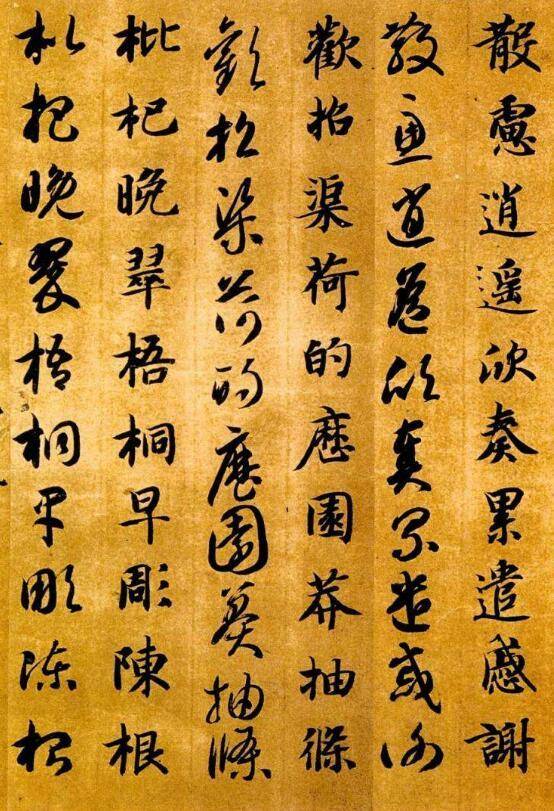 散慮逍遥欣奏累遣慼謝
散慮逍遥欣奏累遣慼謝
歡招渠荷的歷園莽抽條
歡招渠荷的歷園莽抽條
枇杷晚翠梧桐早彫陳根
枇杷晚翠梧桐早彫陳根